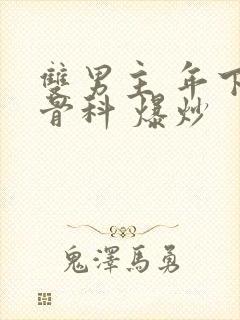 雙男主 年下
骨科 爆炒
鬼澤馬勇